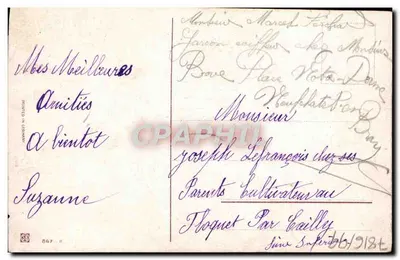 Mes Meilleures
Amitiés
A bientot
Suzanne
Monsieur Marcel
Garcon coiffeur chez Monsieur
Place Notre-Dame
Neufchatel en
Bray
Monsieur
Joseph Lefrançois chez ses
Parents Cultivateur au
Floquet Par Cailly
Seine Inferieure
CPARAMA